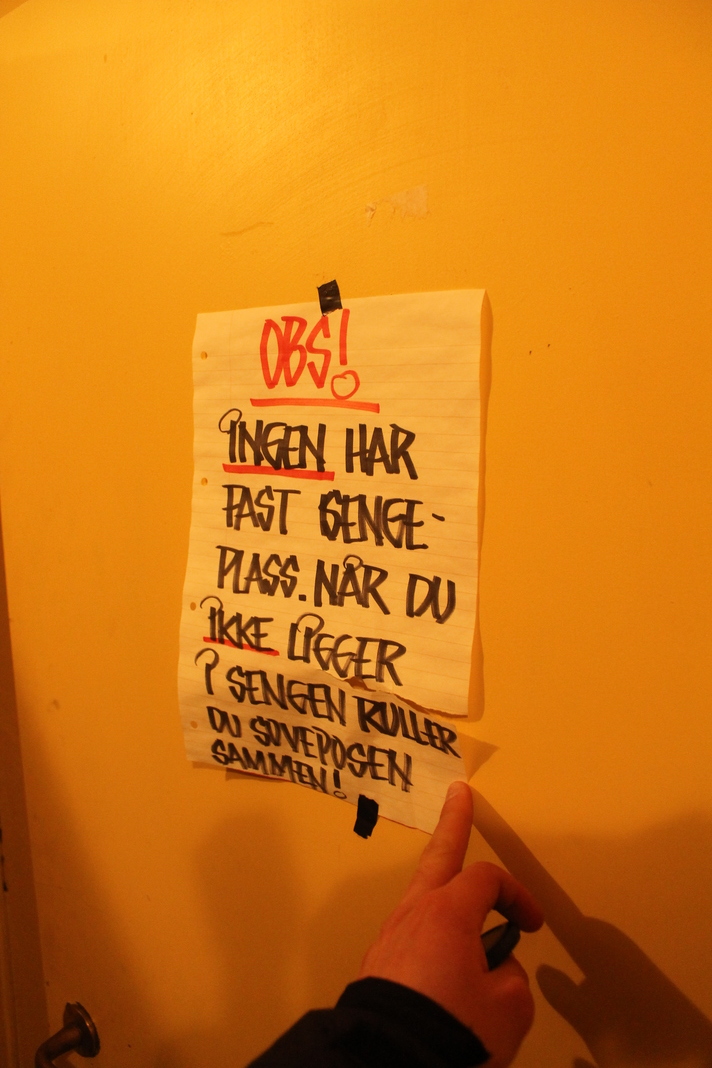 OBS!
INGEN HAR
FAST SENGE-
PLASS. NÅR DU
IKKE LIGGER
I SENGEN RULLER
DU SOVEPOSEN
SAMMEN!